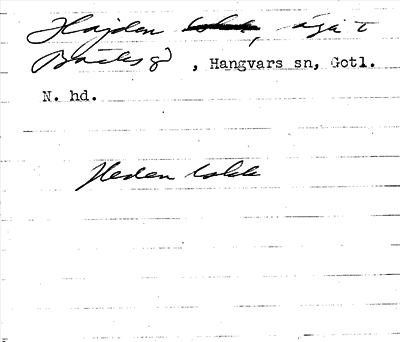 Hajden, äga t
Bäcks gd, Hangvars sn, Gotl.
N. hd.
Heden